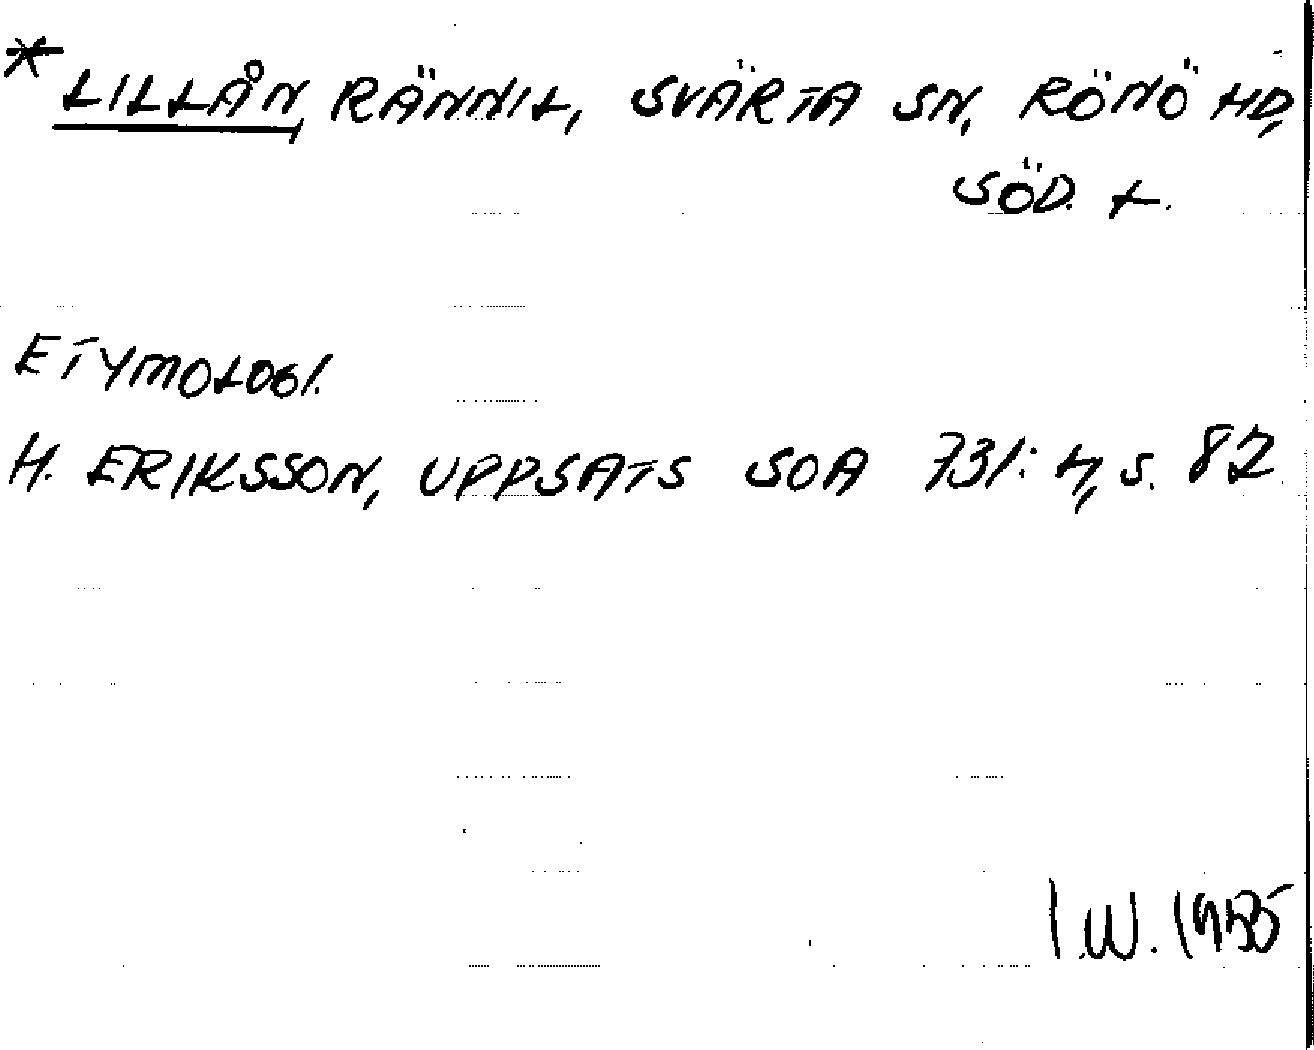 * LILLÅN, RÄNNIL, SVÄRTA SN, RÖNÖ HD,
SÖD. L.
ETYMOLOGI.
H. ERIKSSON, UPPSATS SOA 731:4, S. 82
I.W. 1985